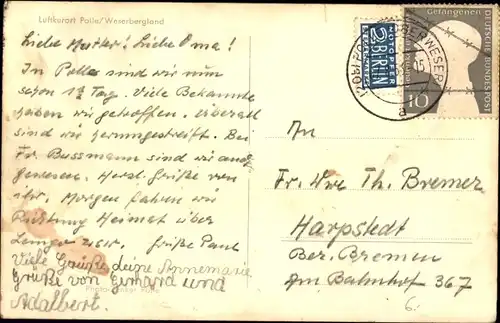 Luftkurort Polle/Weserbergland
Liebe Mutter! Liebe Oma!
In Polle sind wir nun
schon 1½ Tag. Viele Bekannte
haben wir getroffen. Überall
sind wir herumgestreift. Bei
Fr. Bussmann sind wir auch
gewesen. Herzl. Grüße von
ihr. Morgen fahren wir
Richtung Heimat über
Lemgo usw. Grüße Paul
Viele Grüße deine Annemarie
Grüße von Gerhard und
Adalbert.
NOTOPFER
2 BERLIN
STEUERMARKE
(20b) POLLE OBERWESER
a
Gefangenen
DEUTSCHE BUNDESPOST
10
An
Fr. Wwe Th. Bremer
Harpstedt
Bez. Bremen
Am Bahnhof 367
6.